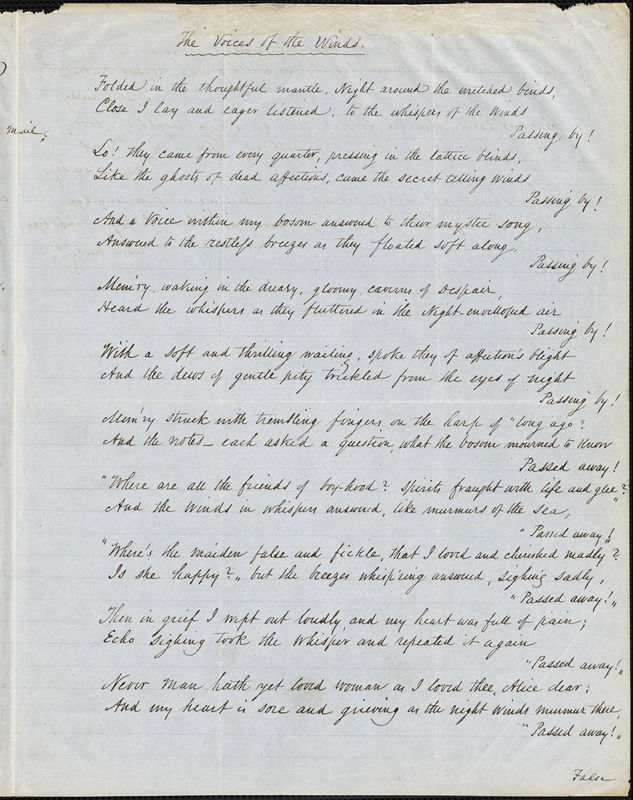 The Voices of the Winds.
Folded in the thoughtful mantle, Night around the wretched binds,
Close I lay and eager listened, to the whispers of the Winds
Passing by!
mail,
Lo! they came from every quarter, pressing in the lattice blinds,
Like the ghosts of dead affections, came the secret telling Winds
Passing by!
And a Voice within my bosom answered to their mystic song,
Answered to the restless breezes as they floated soft along,
Passing by!
Mem'ry, waking in the dreary, gloomy caverns of Despair,
Heard the whispers as they fluttered in the Night-envelloped air
Passing by!
With a soft and thrilling wailing, spoke they of affection's blight
And the dews of gentle pity trickled from the eyes of night
Passing by!
Mem'ry struck with trembling fingers, on the harp of "long ago".
And the notes each asked a question, what the bosom mourned to know
Passed away!
"Where are all the friends of boy-hood? Spirits fraught with life and glee"?
And the Winds in whispers answered, like murmurs of the sea,
"Passed away!"
"Where's the maiden false and fickle, that I loved and cherished madly?
Is she happy?" but the breezes whisp'ring answered, sighing sadly,
"Passed away!"
Then in grief I wept out loudly, and my heart was full of pain;
Echo sighing took the whisper and repeated it again
"Passed away!"
Never man hath yet loved woman as I loved thee, Alice dear;
And my heart is sore and grieving as the night winds murmur there,
"Passed away!"
False